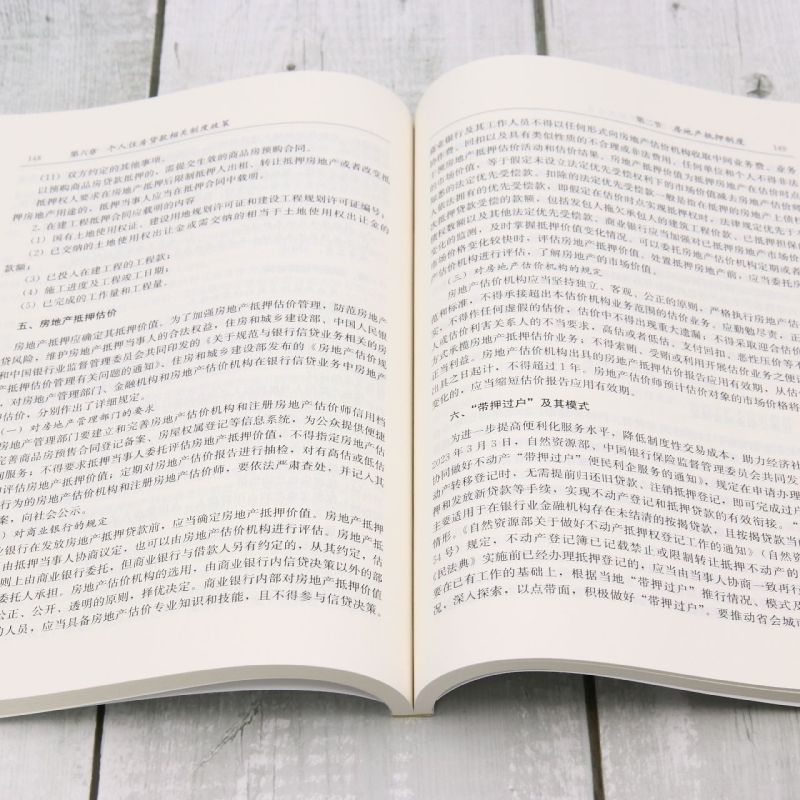 148 第六章 个人住房贷款相关制度政策
(11) 双方约定的其他事项。
以预购商品房贷款抵押的，需提交生效的商品房预购合同。
抵押权人要求在房地产抵押后限制抵押人出租、转让抵押房地产或者改变抵
押房地产用途的，抵押当事人应当在抵押合同中载明。
2. 在建工程抵押合同应载明的内容
(1) 国有土地使用权证、建设用地规划许可证和建设工程规划许可证编号；
(2) 已交纳的土地使用权出让金或需交纳的相当于土地使用权出让金的
款额；
(3) 已投入在建工程的工程款；
(4) 施工进度及工程竣工日期；
(5) 已完成的工作量和工程量。
五、房地产抵押估价
房地产抵押应确定其抵押价值。为了加强房地产抵押估价管理，防范房地产
贷风险，维护房地产抵押当事人的合法权益，住房和城乡建设部、中国人民银
和中国银行业监督管理委员会共同印发的《关于规范与银行信贷业务相关的房
产抵押估价管理有关问题的通知》、住房和城乡建设部发布的《房地产估价规
，对房地产管理部门、金融机构和房地产估价机构在银行信贷业务中房地产
押估价，分别作出了详细规定。
(一) 对房地产管理部门的要求
房地产管理部门要建立和完善房地产估价机构和注册房地产估价师信用档
完善商品房预售合同登记备案、房屋权属登记等信息系统，为公众提供便捷
询服务；不得要求抵押当事人委托评估房地产抵押价值，不得指定房地产估
构评估房地产抵押价值；定期对房地产估价报告进行抽检，对有高估或低估
行为的房地产估价机构和注册房地产估价师，要依法严肃查处，并记入其
案，向社会公示。
对商业银行的规定
业银行在发放房地产抵押贷款前，应当确定房地产抵押价值。房地产抵
由抵押当事人协商议定，也可以由房地产估价机构进行评估。房地产抵
则上由商业银行委托，但商业银行与借款人另有约定的，从其约定，估
委托人承担。房地产估价机构的选用，由商业银行内信贷决策以外的部
公正、公开、透明的原则，择优决定。商业银行内部对房地产抵押价值
的人员，应当具备房地产估价专业知识和技能，且不得参与信贷决策。
第二节 房地产抵押制度 149
商业银行及其工作人员不得以任何形式向房地产估价机构收取中间业务费、业务
协作费、回扣以及具有类似性质的不合理或非法费用。任何单位和个人不得非法
预房地产抵押估价活动和估价结果。房地产抵押价值为抵押房地产在估价时点
的市场价值，等于假定未设立法定优先受偿权利下的市场价值减去房地产估价师
悉的法定优先受偿款。扣除的法定优先受偿款一般是指在抵押的房地产上债权
人依法拥有的优先受偿款，即假定在估价时点实现抵押权时，法律规定优先于本
次抵押贷款受偿的款额，包括发包人拖欠承包人的建筑工程价款、已抵押担保的
债权数额以及其他法定优先受偿款。商业银行应当加强对已抵押房地产市场价格
变化的监测，及时掌握抵押价值变化情况。可以委托房地产估价机构定期或者在
市场价格变化较快时，评估房地产抵押价值。处置抵押房地产前，应当委托房
产估价机构进行评估，了解房地产的市场价值。
(三) 对房地产估价机构的规定
房地产估价机构应当坚持独立、客观、公正的原则，严格执行房地产估
范和标准，不得承接超出本估价机构业务范围的估价业务。应勤勉尽责，正
，不得作任何虚假的估价，估价中不得出现重大遗漏；不得采取迎合估价
人或估价利害关系人的不当要求、高估或者低估、支付回扣、恶性压价等不
方式承揽房地产抵押估价业务；不得索贿、受贿或利用开展估价业务之便
正当利益。房地产估价机构出具的房地产抵押估价报告应用有效期，从估价
出具之日起计，不得超过1年。房地产估价师预计估价对象的市场价格将
变化的，应当缩短估价报告应用有效期。
六、“带押过户”及其模式
为进一步提高便利化服务水平，降低制度性交易成本，助力经济社
2023年3月3日，自然资源部、中国银行保险监督管理委员会共同发
协同做好不动产“带押过户”便民利企服务的通知》，规定在申请办
动产转移登记时，无需提前归还旧贷款、注销抵押登记，即可完成过户
押和发放新贷款等手续，实现不动产登记和抵押贷款的有效衔接。“
主要适用于在银行业金融机构存在未结清的按揭贷款，且按揭贷款当
情形。《自然资源部关于做好不动产抵押权登记工作的通知》（自然资
54号）规定，不动产登记簿已记载禁止或限制转让抵押不动产的
《民法典》实施前已经办理抵押登记的，应当由当事人协商一致再行
要在已有工作的基础上，根据当地“带押过户”推行情况、模式及
况，深入探索，以点带面，积极做好“带押过户”。要推动省会城市